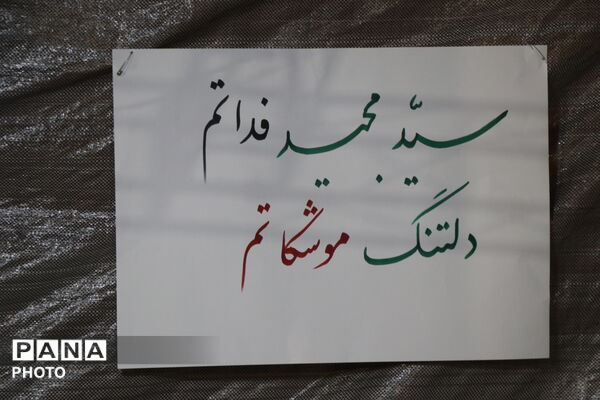 سیّد مجید فداتم
دلتنگ موشکاتم
PANA
PHOTO